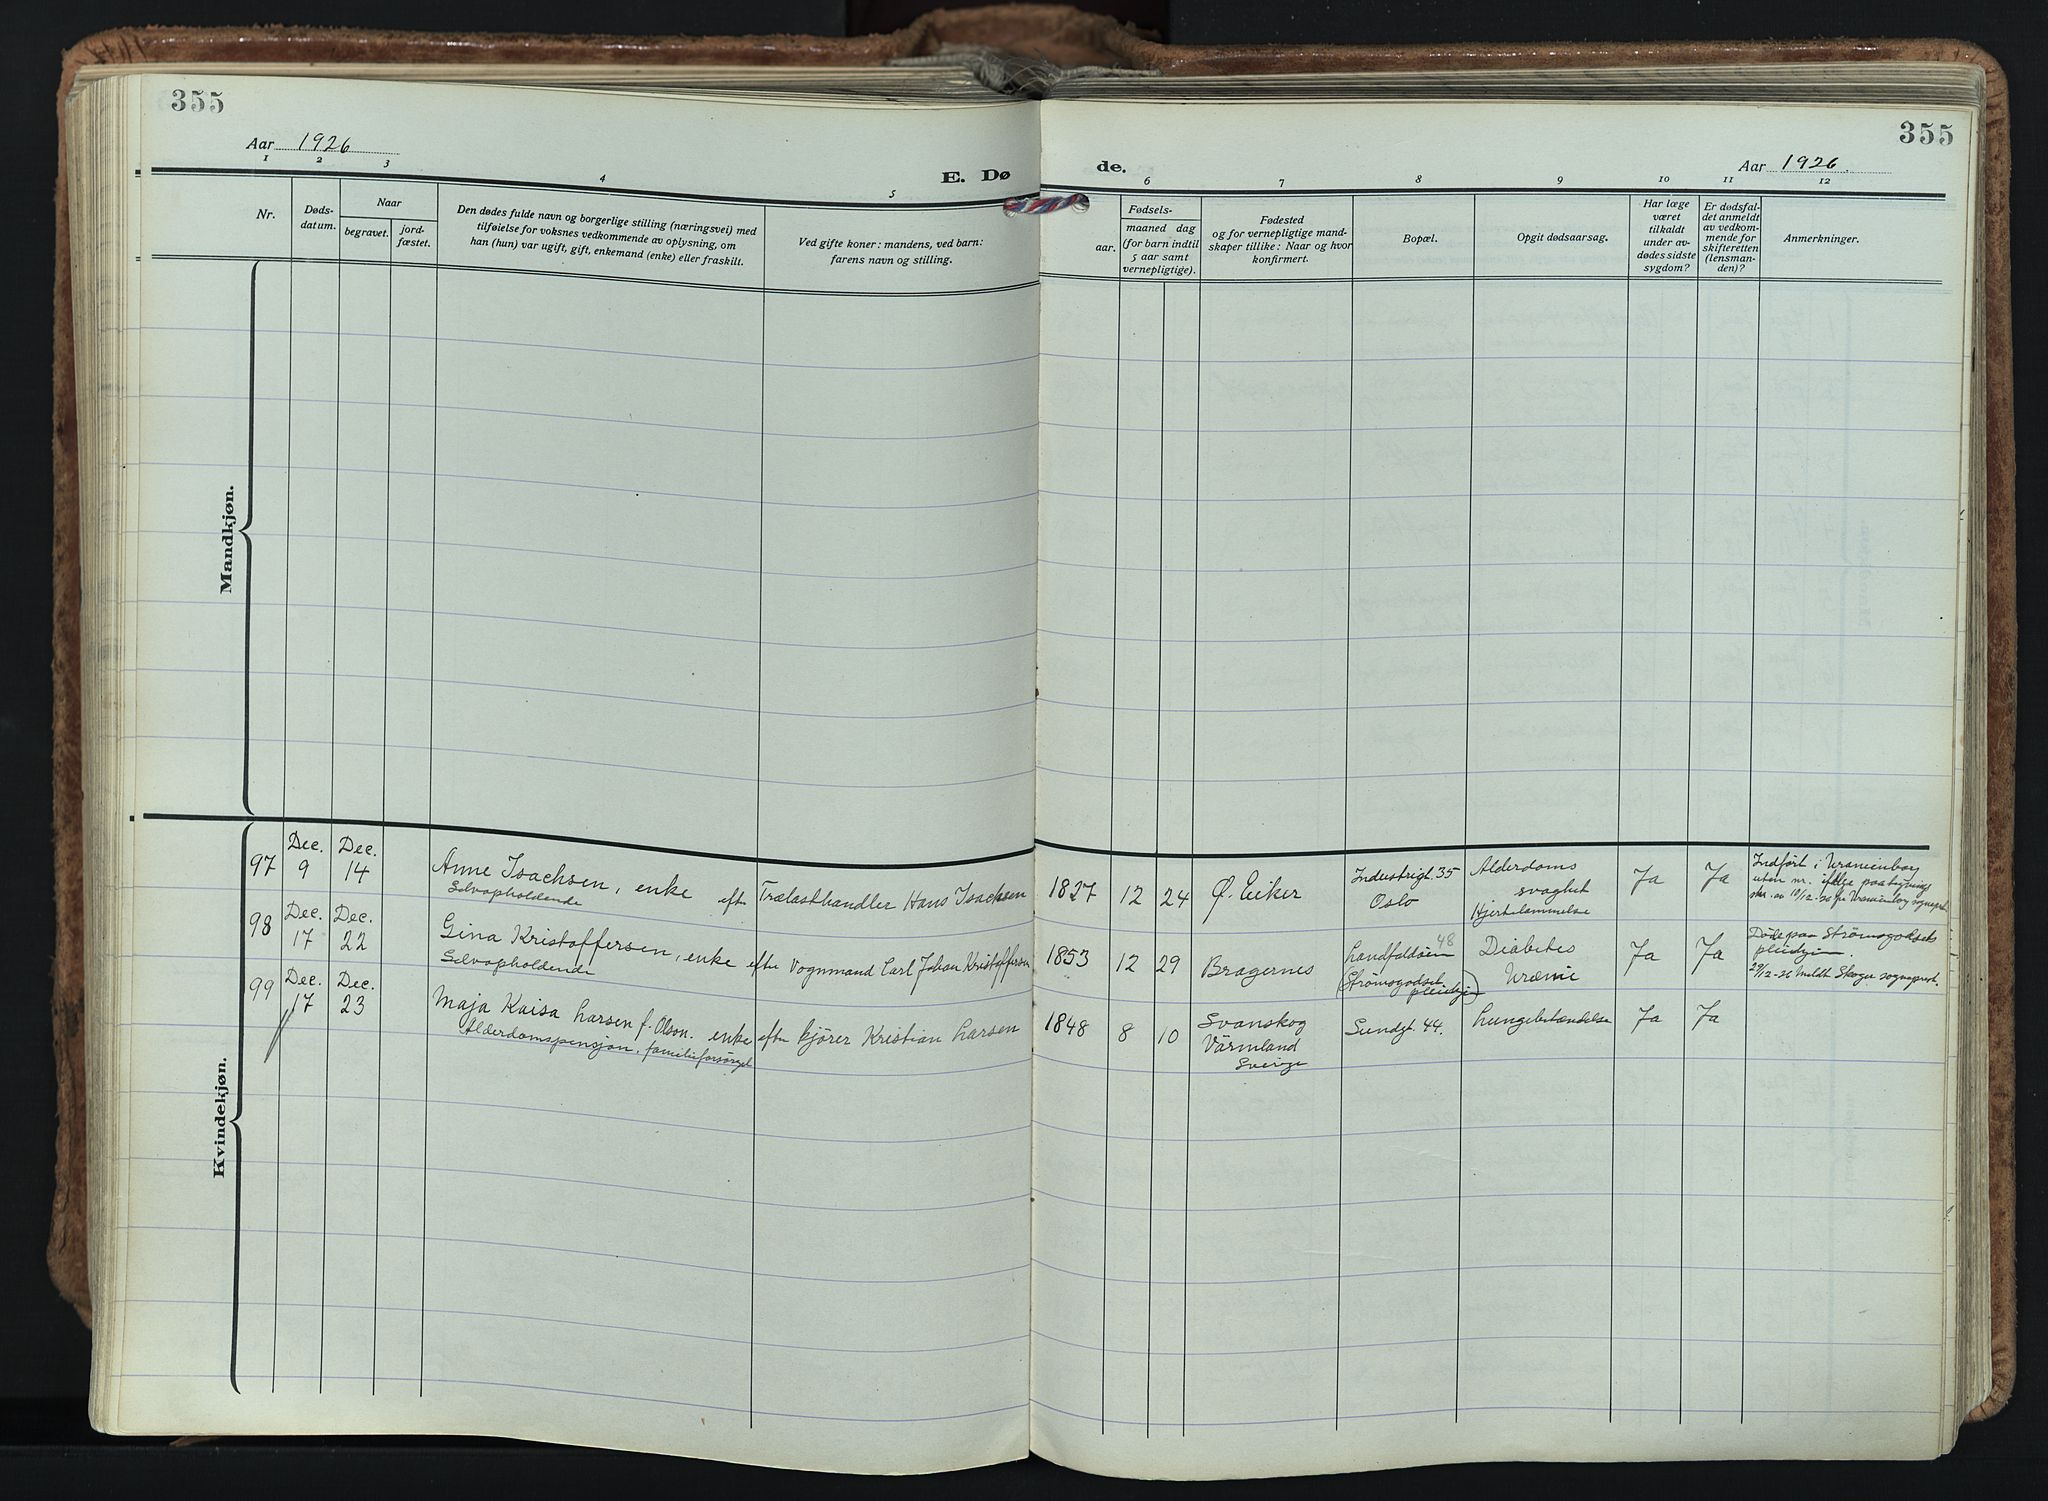 355
355
Aar 1926
Aar 1926
E. Dø
de.
1 2 3 4 5
6 7 8 9 10 11 12
Nr.
Døds-
datum.
Naar
begravet.
jord-
fæstet.
Den dødes fulde navn og borgerlige stilling (næringsvei) med
tilføielse for voksnes vedkommende av oplysning, om
han (hun) var ugift, gift, enkemand (enke) eller fraskilt.
Ved gifte koner: mandens, ved barn:
farens navn og stilling.
Fødsels-
aar.
maaned dag
(for barn indtil
5 aar samt
vernepligtige).
Fødested
og for vernepligtige mand-
skaper tillike: Naar og hvor
konfirmert.
Bopæl.
Opgit dødsaarsag.
Har læge
været
tilkaldt
under av-
dødes sidste
sygdom?
Er dødsfal-
det anmeldt
av vedkom-
mende for
skifteretten
(lensman-
den)?
Anmerkninger.
Mandkjøn.
Kvindekjøn.
97
Dec.
9
Dec.
14
Anne Isachsen, enke
Selvopholdende
efter Trælasthandler Hans Isachsen
1827 12 24
Ø. Eiker
Industrigt. 35
Oslo
Alderdoms
svaghet
Hjertelammelse
Ja
Ja
Indført i Uranienborg
uten nr. ifølge paategning
Uranienborg sognepr.
98
Dec.
17
Dec.
22
Gina Kristoffersen, enke
Selvopholdende
efter Vognmand Carl Johan Kristoffersen
1853 12 29
Bragernes
Landfaldøen 48
(Strømsgodset
pleiehj.)
Diabetes
Uræmi
Ja
Ja
Døde paa Strømsgodsets
pleiehjem.
29/12-26 meldt Skoger sogneprest.
99
Dec.
17
Dec.
23
Maja Kaisa Larsen f. Olson. enke
Alderdomspensjon, familieforsørget
efter kjører Kristian Larsen
1848 8 10
Svanskog
Värmland
Sverige
Sundgt. 44.
Lungebetændelse
Ja
Ja